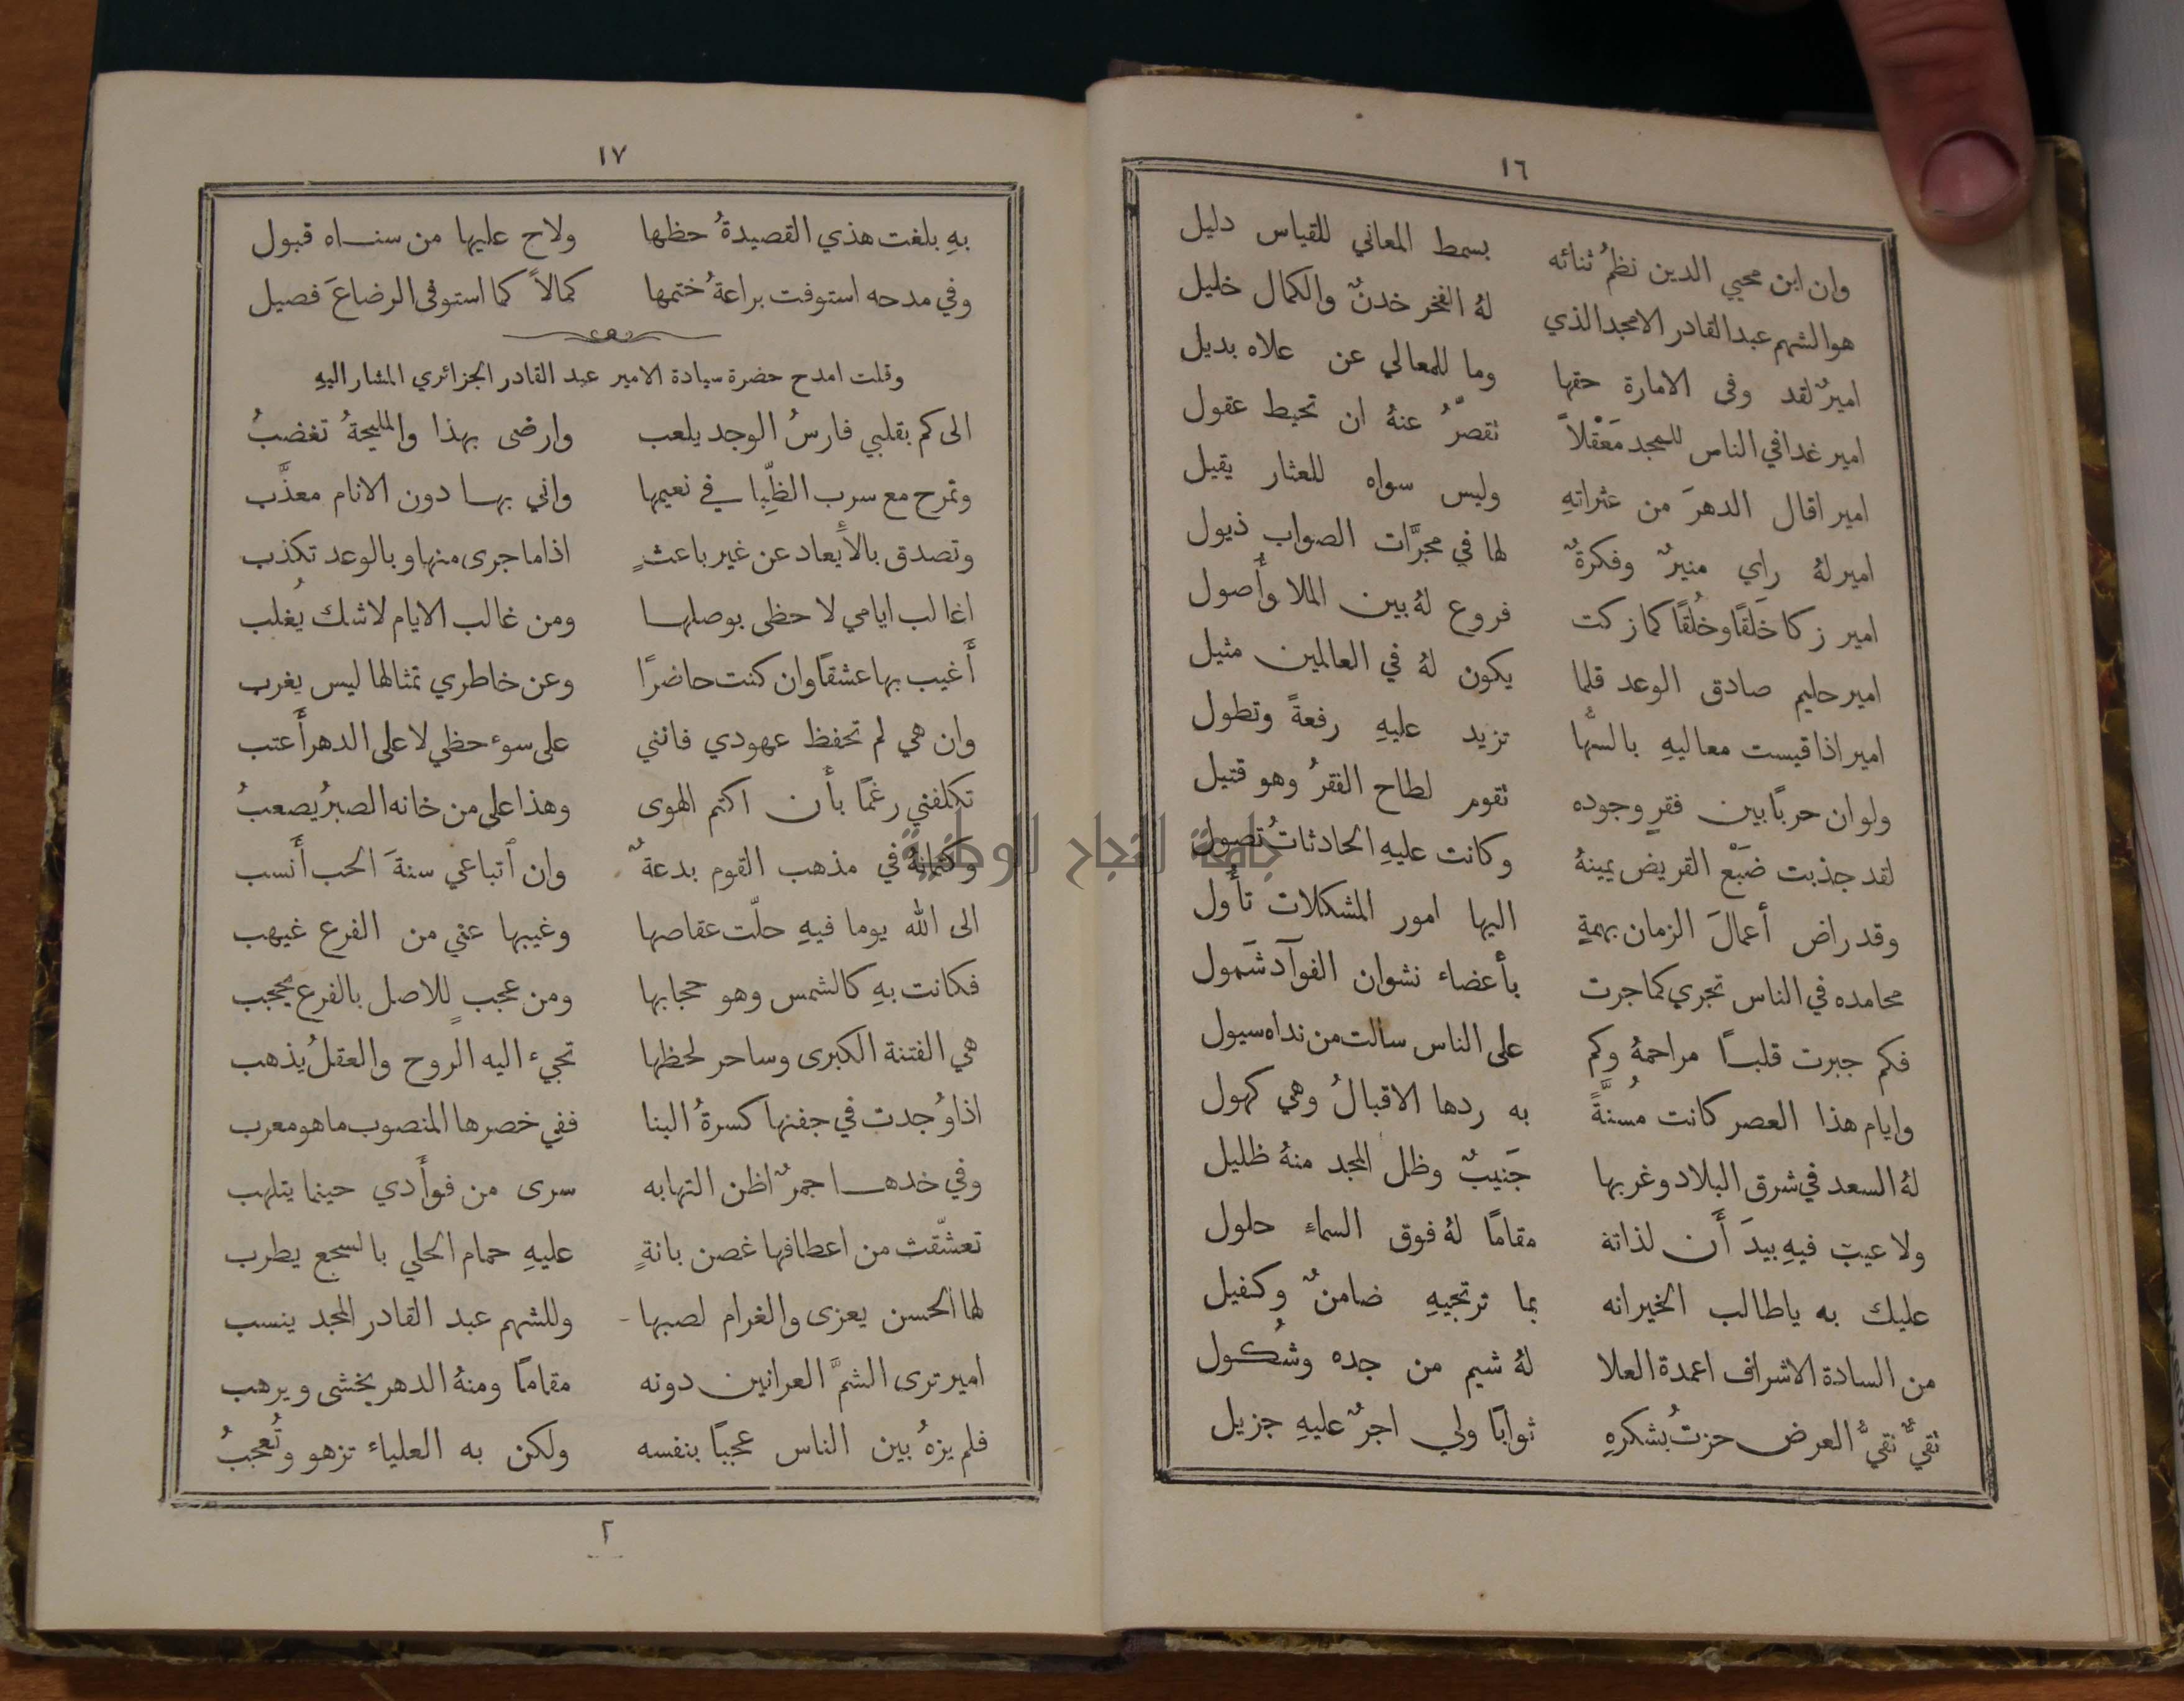 ١٦
وان ابن محيي الدين نظمُ ثنائه بسمط المعاني للقياس دليل
هوالشهم عبدالقادر الامجدالذي لهُ الفخر خدنٌ والكمال خليل
اميرٌ لقد وفى الامارة حقها وما للمعالي عن علاه بديل
امير غدا في الناس للمجد مَعْقلاً تقصّرُ عنهُ ان تحيط عقول
امير اقال الدهرَ من عثراتهِ وليس سواه للعثار يقيل
امير لهُ راي منيرٌ وفكرةٌ لها في مجرَّات الصواب ذيول
امير زكا خَلقًا وخُلقًا كما زكت فروع لهُ بين الملا وأُصول
امير حليم صادق الوعد قلما يكون لهُ في العالمين مثيل
امير اذا قيست معاليهِ بالسُّها تزيد عليهِ رفعةً وتطول
ولو ان حربًا بين فقرٍ وجوده تقوم لطاح الفقرُ وهو قتيل
لقد جذبت ضَبْع القريض يمينهُ وكانت عليهِ الحادثاتُ تصول
وقد راض أعمالَ الزمان بهمةٍ اليها امور المشكلات تأُول
محامده في الناس تجري كما جرت بأعضاء نشوان الفوآد شَمول
فكم جبرت قلبـًا مراحمهُ وكم على الناس سالت من نداه سيول
وايام هذا العصر كانت مُسنَّةً به ردها الاقبالُ وهي كهول
لهُ السعد في شرق البلاد وغربها جَنيبٌ وظل المجد منهُ ظليل
ولا عيب فيهِ بيدَ أَن لذاته مقامًا لهُ فوق السماءِ حلول
عليك به ياطالب الخيرانه بما ترتجيهِ ضامنٌ وكفيل
من السادة الاشراف اعمدة العلا لهُ شيم من جده وشُكول
تقيٌّ نقيُّ العرض حزتُ بشكرهِ ثوابًا ولي اجرٌ عليهِ جزيل
١٧
بهِ بلغت هذي القصيدةُ حظها ولاح عليها من سنـاه قبول
وفي مدحه استوفت براعةُ ختمها كمالاً كما استوفى الرضاعَ فصيل
وقلت امدح حضرة سيادة الامير عبد القادر الجزائري المشار اليهِ
الى كم بقلبي فارسُ الوجد يلعب وارضى بهذا والمليحةُ تغضبُ
وتمرح مع سرب الظِّبا في نعيمها واني بهـا دون الانام معذَّب
وتصدق بالأبعاد عن غير باعثٍ اذا ما جرى منها وبالوعد تكذب
اغالب ايامي لا حظى بوصلهـا ومن غالب الايام لاشك يُغلب
أَغيب بها عشقًا وان كنت حاضرًا وعن خاطري تمثالها ليس يغرب
وان هي لم تحفظ عهودي فانني على سوء حظي لا على الدهر أَعتب
تكلفني رغمًا بأن اكتم الهوى وهذا على من خانه الصبرُ يصعبُ
وكتمانهُ في مذهب القوم بدعةٌ وان اتباعي سنةَ الحب أَنسب
الى الله يوما فيهِ حلّت عقاصها وغيبها عني من الفرع غيهب
فكانت بهِ كالشمس وهو حجابها ومن عجبٍ للاصل بالفرع يحجب
هي الفتنة الكبرى وساحر لحظها تجيء اليه الروح والعقلُ يذهب
اذا وُجدت في جفنها كسرةُ البنا ففي خصرها المنصوب ما هو معرب
وفي خدهـا جمرٌ اظن التهابه سرى من فوأَدي حينما يتلهب
تعشّقت من اعطافها غصن بانةٍ عليهِ حمام الحلي بالسجع يطرب
لها الحسن يعزى والغرام لصبها وللشهم عبد القادر المجد ينسب
امير ترى الشمَّ العرانين دونه مقامًا ومنهُ الدهر يخشى ويرهب
فلم يزهُ بين الناس عجبًا بنفسه ولكن به العلياء تزهو وتُعجبُ
٢
جامعة النجاح الوطنية